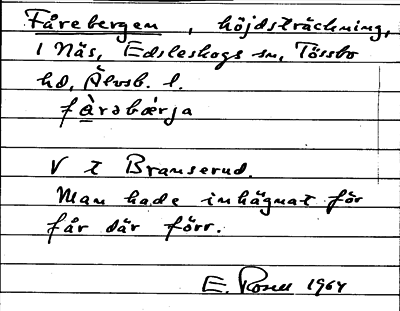 Fårebergen, höjdsträckning,
i Näs, Edsleskogs sn, Tössbo
hd, Älvsb. l.
fàrəbærja
V t Branserud.
Man hade inhägnat för
får där förr.
E. Rosell 1964